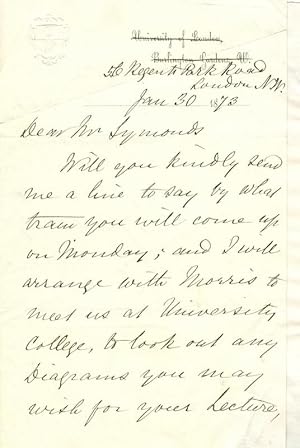 University of London,
Burlington Gardens, W.
56 Regent's Park Road
London N.W.
Jan 30 1873
Dear Mr Symonds
Will you kindly send
me a line to say by what
train you will come up
on Monday; and I will
arrange with Morris to
meet us at University
College, to look out any
Diagrams you may
wish for your Lecture,